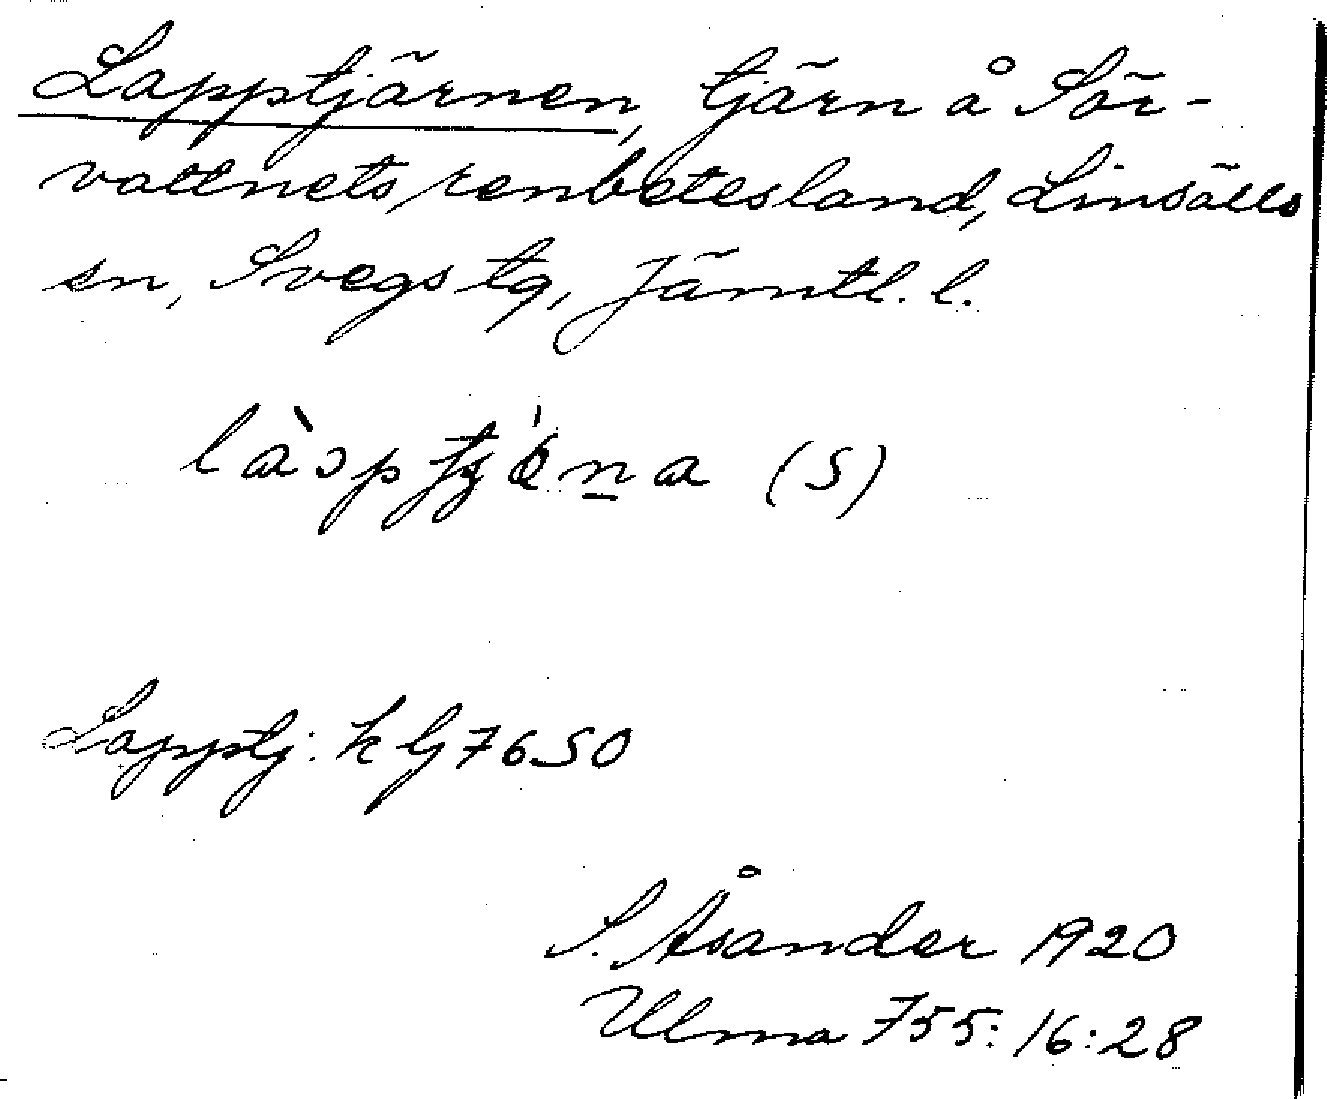 Lapptjärnen, tjärn å Sör-
vattnets renbetesland, Linsälls
sn, Svegs tg, Jämtl. l.
(S)
Lapptj: k G 7650
S. Åsander 1920
Ulma 755:16:28